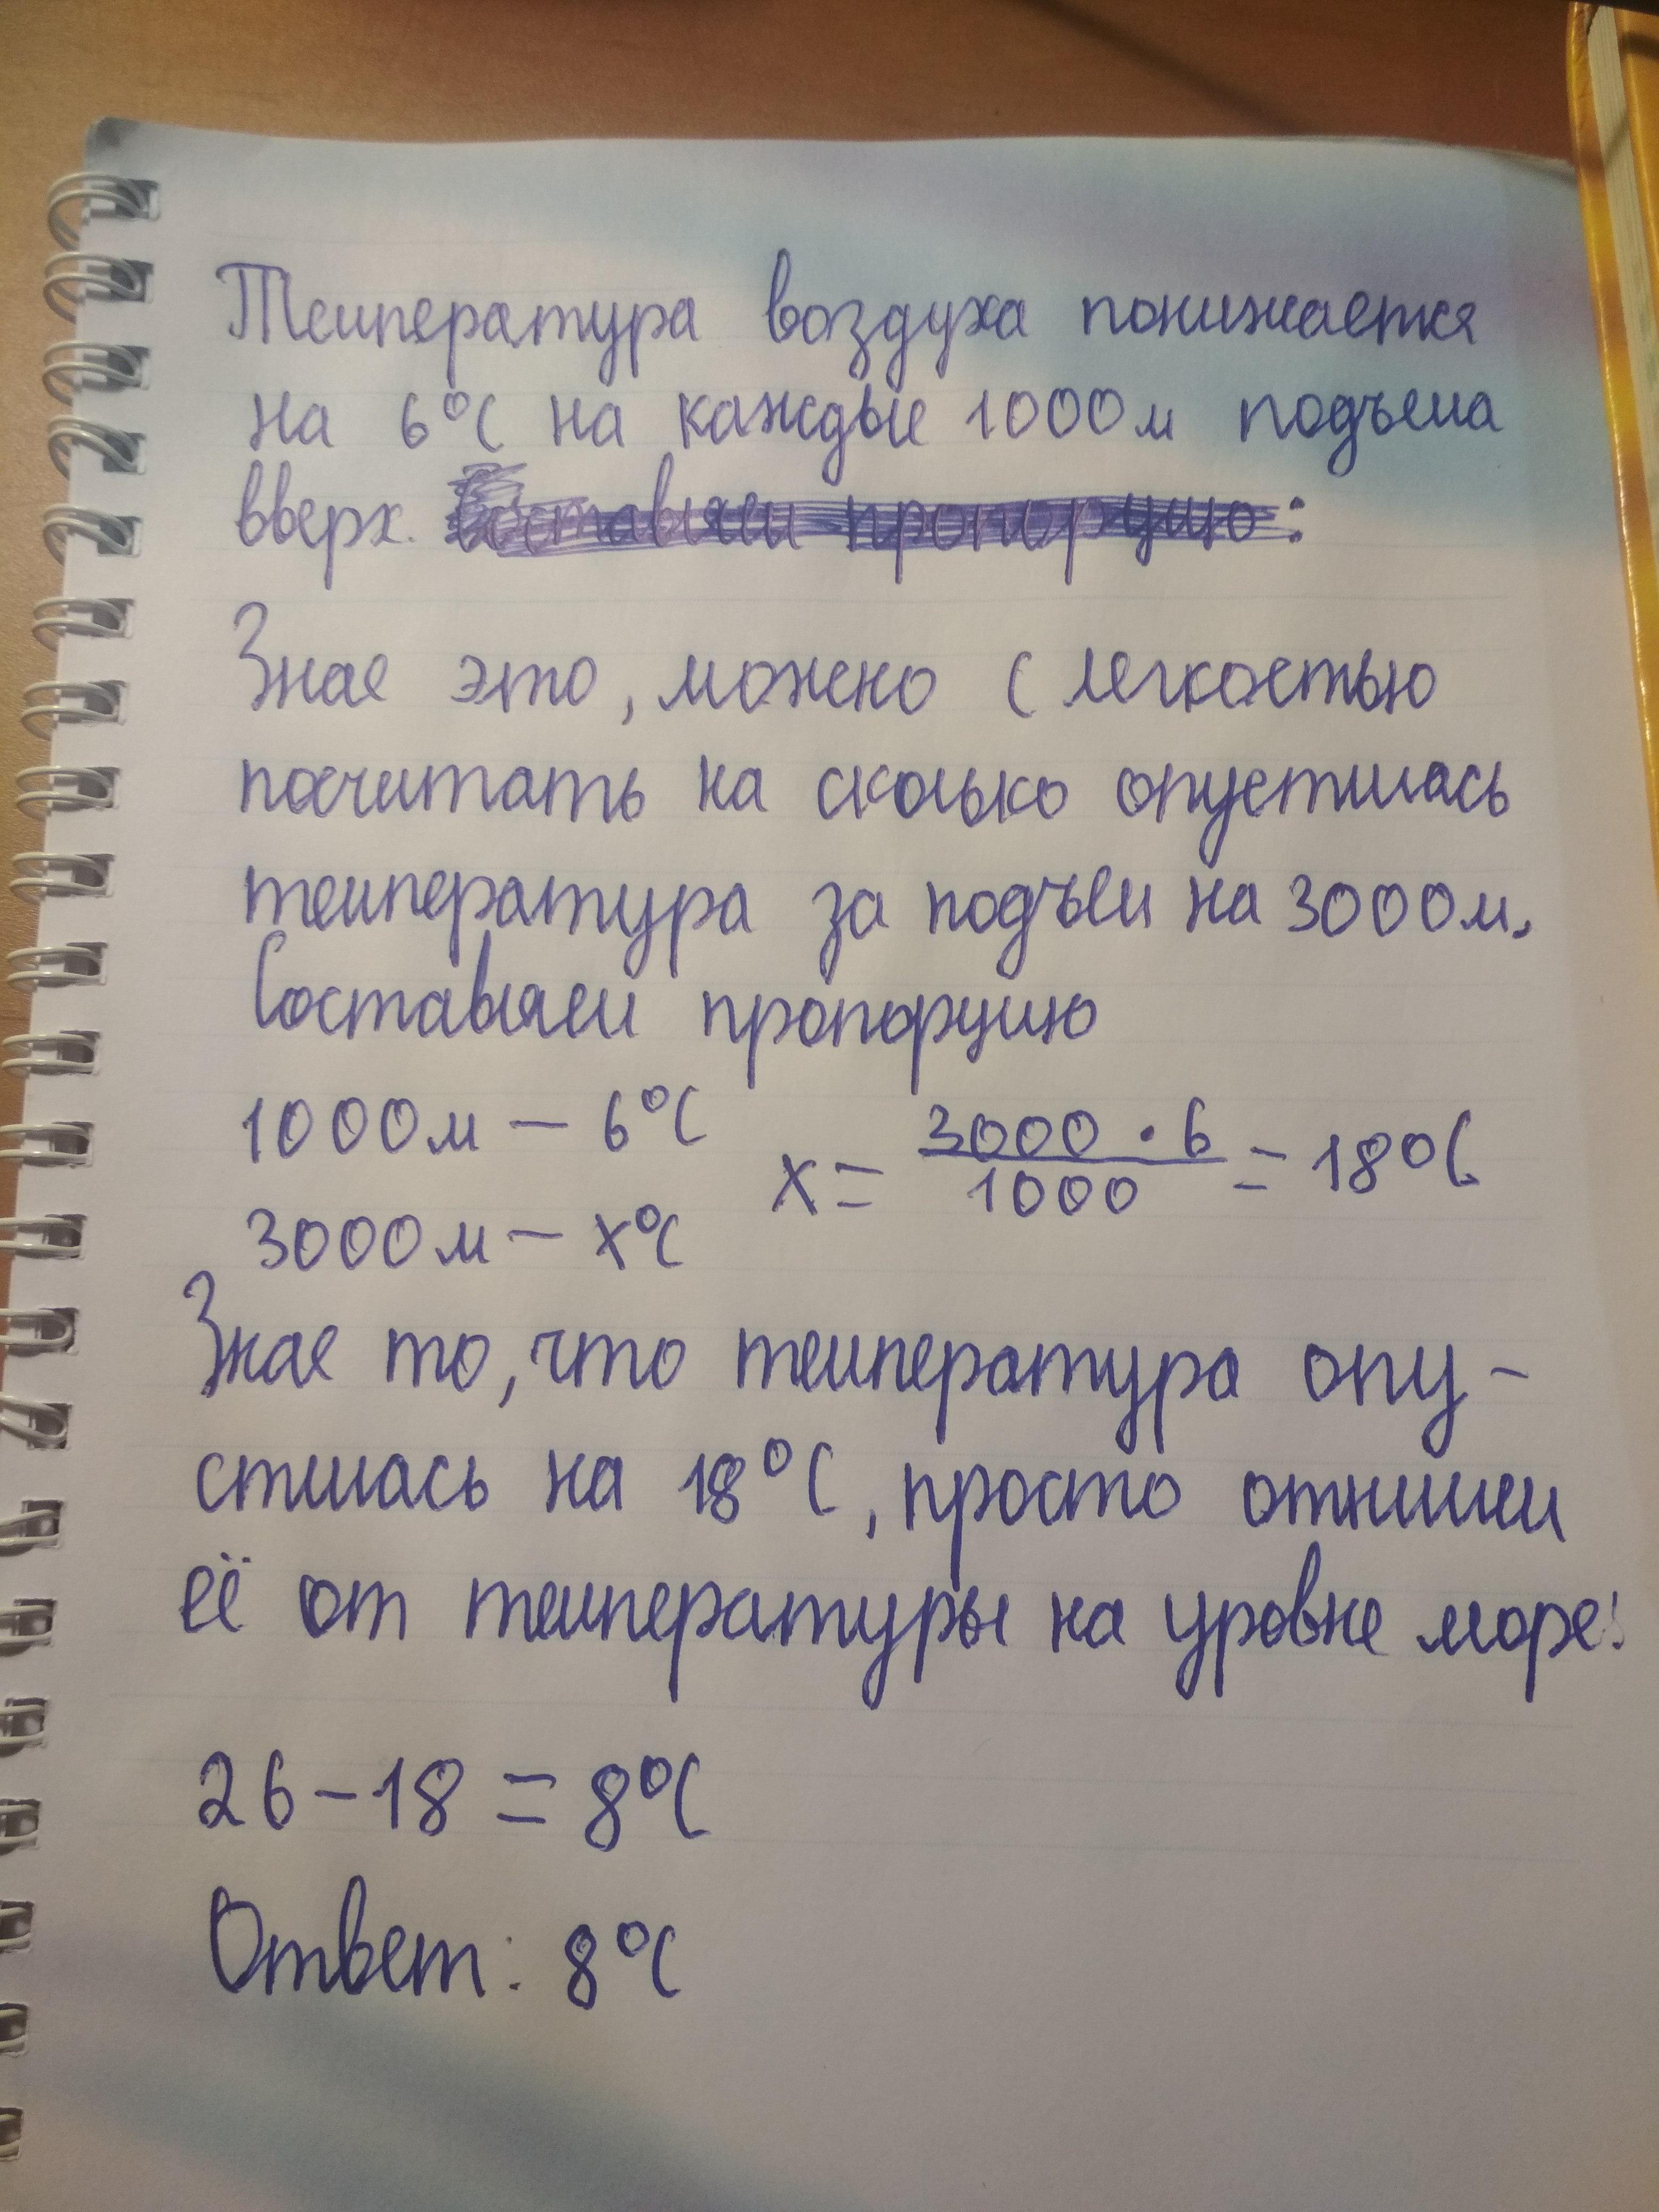 Температура воздуха понижается
на 6°С на каждые 1000м подъема
вверх. Составляем пропорцию:
Зная это, можно с легкостью
посчитать на сколько опустилась
температура за подъем на 3000м.
Составляем пропорцию
1000м — 6°С
3000м — x°С
x = 3000 · 6 / 1000 = 18°С.
Зная то, что температура опу-
стилась на 18°С, просто отнимем
её от температуры на уровне моря:
26-18 = 8°С
Ответ: 8°С